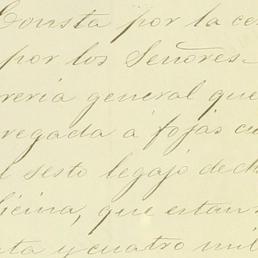 Consta por la ce
por los Señores
rería general que
regada á fojas cu
l sesto legajo de ch
licina, que estan
ta y cuatro mil